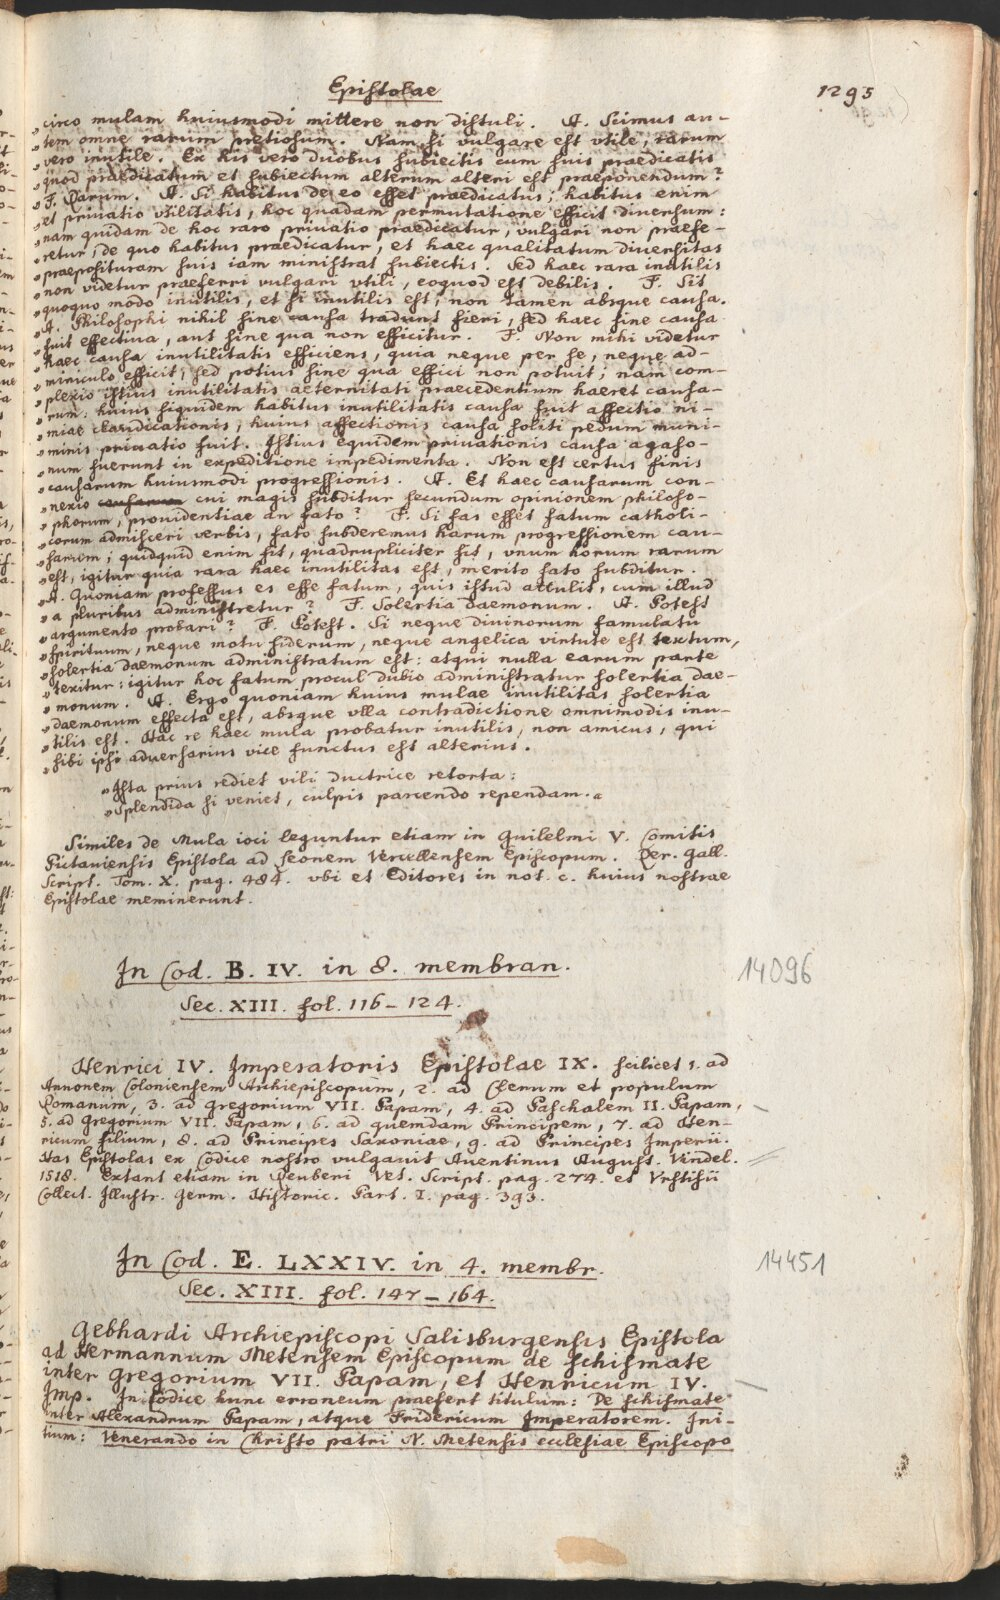 Epistolae
1295
„circo mulam huiusmodi mittere non distuli. A. Scimus au-
„tem omne rarum pretiosum. Nam si vulgare est vtile, rarum
„vero inutile. Ex his vero duobus subiectis cum suis praedicatis
„quod praedicatum et subiectum alterum alteri est praeponendum?
„F. Rarum. A. Si habitus de eo esset praedicatus; habitus enim
„et priuatio vtilitatis, hoc quadam permutatione efficit diuersum:
„nam quidam de hoc raro priuatio praedicatur, vulgari non praefe-
„retur, de quo habitus praedicatur, et haec qualitatum diuersitas
„praeposituram suis iam ministrat subiectis. Sed haec rara inutilis
„non videtur praeferri vulgari vtili, eoquod est debilis. F. Sit
„quoquo modo inutilis, et si inutilis est, non tamen absque causa.
„A. Philosophi nihil sine causa tradunt fieri, sed haec sine causa
„fuit effectiua, aut sine qua non efficitur. F. Non mihi videtur
„haec causa inutilitatis efficiens, quia neque per se, neque ad-
„miniculo efficit, sed potius sine qua effici non potuit; nam com-
„plexio istius inutilitatis aeternitati praecedentium haeret causa-
„rum: huius siquidem habitus inutilitatis causa fuit affectio ni-
„miae claudicationis, huius affectionis causa soliti pedum muni-
„minis priuatio fuit. Istius equidem priuationis causa agaso-
„num fuerunt in expeditione impedimenta. Non est certus finis
„causarum huiusmodi progressionis. A. Et haec causarum con-
„nexio causarum cui magis subditur secundum opinionem philoso-
„phorum, prouidentiae an fato? F. Si fas esset fatum catholi-
„corum admisceri verbis, fato subderemus harum progressionem cau-
„sarum; quidquid enim fit, quadrupliciter fit, vnum horum rarum
„est, igitur quia rara haec inutilitas est, merito fato subditur.
„A. Quoniam professus es esse fatum, quis istud attulit, cum illud
„a pluribus administretur? F. Solertia daemonum. A. Potest
„argumento probari? F. Potest. Si neque diuinorum famulatu
„spirituum, neque motu siderum, neque angelica virtute est textum,
„solertia daemonum administratum est: atqui nulla earum parte
„texitur: igitur hoc fatum procul dubio administratur solertia dae-
„monum. A. Ergo quoniam huius mulae inutilitas solertia
„daemonum effecta est, absque vlla contradictione omnimodis inu-
„tilis est. Hac re haec mula probatur inutilis, non amicus, qui
„sibi ipsi aduersarius vice functus est alterius.
„Ista prius rediet vili ductrice retorta:
„Splendida si veniet, culpis parcendo rependam.“
Similes de Mula ioci leguntur etiam in Guilelmi V. Comitis
Pictauiensis Epistola ad Leonem Vercellensem Episcopum. Rer. Gall.
Script. Tom. X. pag. 484. vbi et Editores in not. c. huius nostrae
Epistolae meminerunt.
In Cod. B. IV. in 8. membran.
14096
Sec. XIII. fol. 116-124.
Henrici IV. Imperatoris Epistolae IX. scilicet 1. ad
Annonem Coloniensem Archiepiscopum, 2. ad Clerum et populum
Romanum, 3. ad Gregorium VII. Papam, 4. ad Paschalem II. Papam,
5. ad Gregorium VII. Papam, 6. ad quemdam Principem, 7. ad Hen-
ricum filium, 8. ad Principes Saxoniae, 9. ad Principes Imperii.
Has Epistolas ex Codice nostro vulgauit Auentinus August. Vindel.
1518. Extant etiam in Reuberi Vet. Script. pag. 274. et Vrstisii
Collect. Illustr. Germ. Historic. Part. I. pag. 393.
In Cod. E. LXXIV. in 4. membr.
14451
Sec. XIII. fol. 147-164.
Gebhardi Archiepiscopi Salisburgensis Epistola
ad Hermannum Metensem Episcopum de schismate
inter Gregorium VII. Papam, et Henricum IV.
Imp. In Codice hunc erroneum praefert titulum: De schismate
inter Alexandrum Papam, atque Fridericum Imperatorem. Ini-
tium: Venerando in Christo patri N. Metensis ecclesiae Episcopo